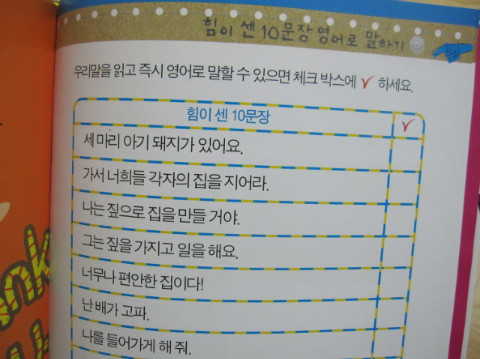 힘이 센 10문장 영어로 말하기
우리말을 읽고 즉시 영어로 말할 수 있으면 체크 박스에 ✓ 하세요.
힘이 센 10문장 ✓
세 마리 아기 돼지가 있어요.
가서 너희들 각자의 집을 지어라.
나는 짚으로 집을 만들 거야.
그는 짚을 가지고 일을 해요.
너무나 편안한 집이다!
난 배가 고파.
나를 들어가게 해 줘.